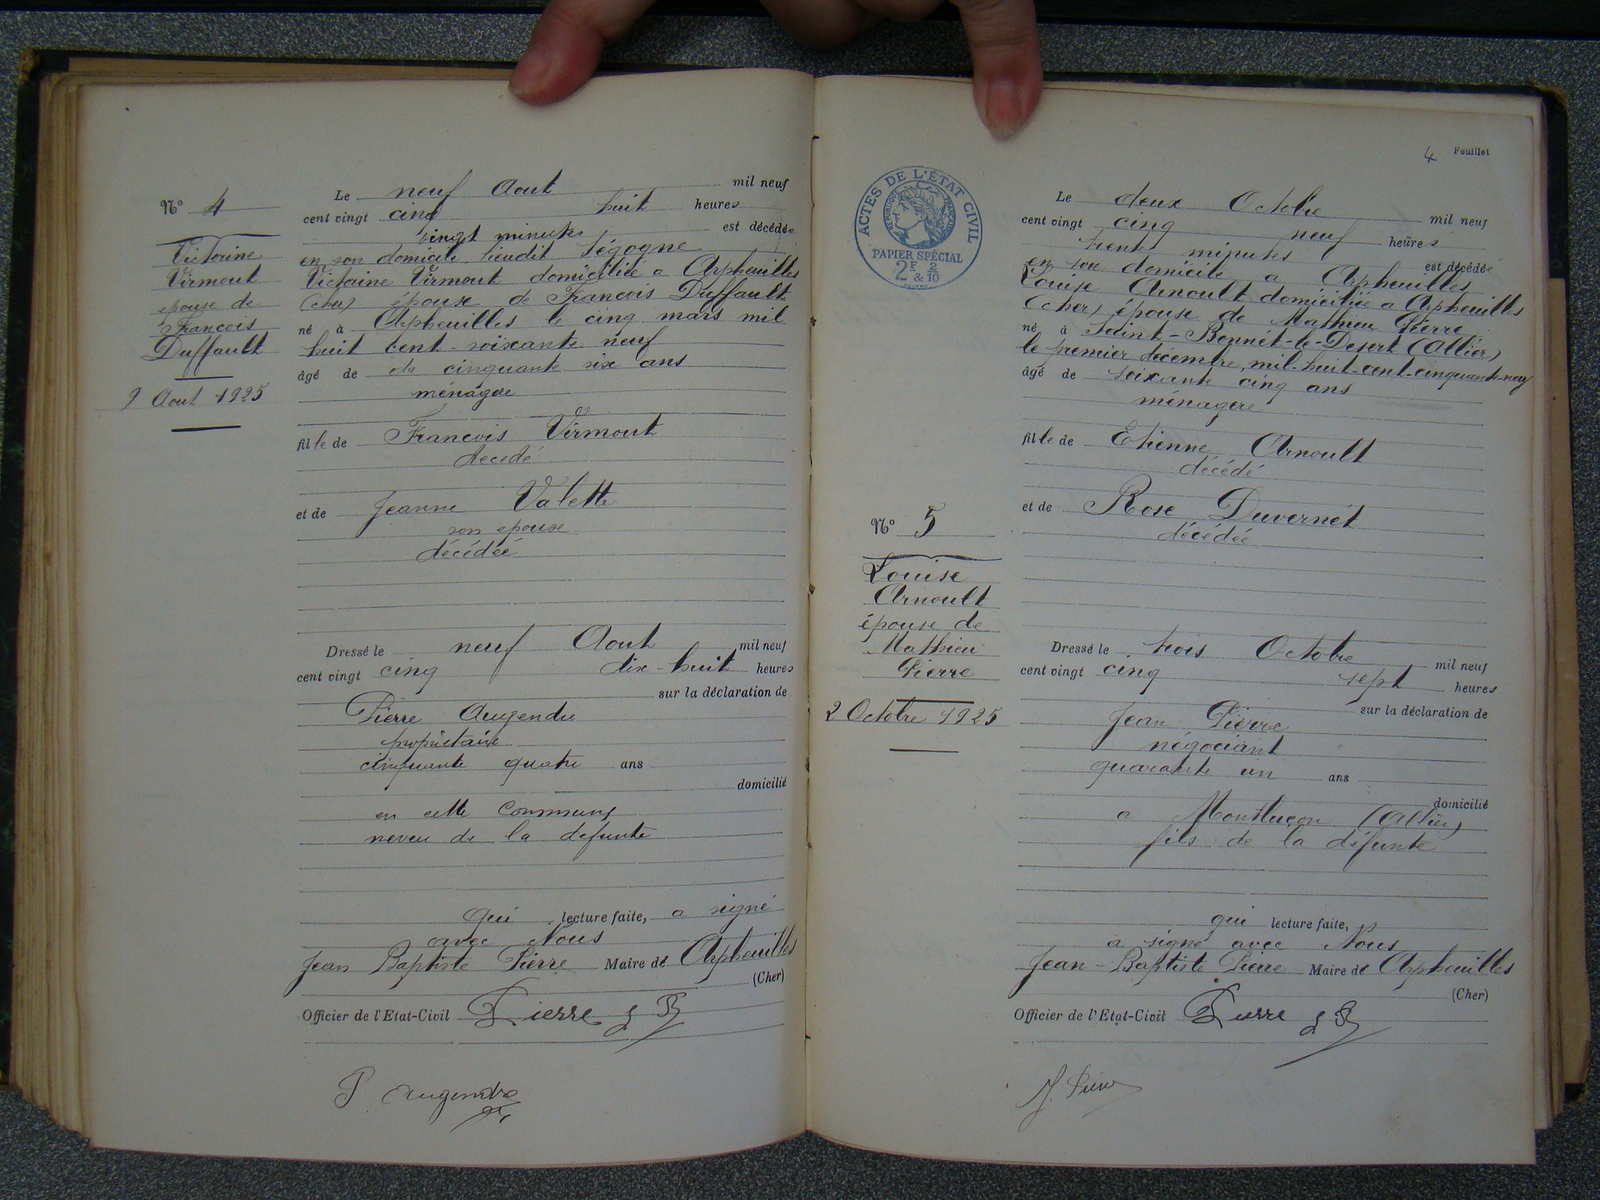 N° 4
Victorine
Virmout
épouse de
François
Duffault
9 Aout 1925
Le neuf Aout mil neuf
cent vingt cinq huit heures
vingt minutes est décédée
en son domicile lieudit Ségogne
Victorine Virmout domiciliée a Arpheuilles
(cher) épouse de François Duffault
né à Arpheuilles le cinq mars mil
huit cent soixante neuf
âgé de de cinquante six ans
ménagère
fille de François Virmout
décédé
et de Jeanne Valette
son epouse
décédée
Dressé le neuf Aout mil neuf
cent vingt cinq dix-huit heures
sur la déclaration de
Pierre Augendre
propriétaire
cinquante quatre ans
domicilié
en cette commune
neveu de la defunte
qui lecture faite, a signé
avec Nous
Jean Baptiste Pierre Maire de Arpheuilles
(Cher)
Officier de l'Etat-Civil Pierre J B
P Augendre
4 Feuillet
ACTES DE L'ÉTAT CIVIL
PAPIER SPÉCIAL
2F & 2/10
N° 5
Louise
Arnoult
épouse de
Mathieu
Pierre
2 Octobre 1925
Le deux Octobre mil neuf
cent vingt cinq neuf heures
trente minutes est décédée
en son domicile a Arpheuilles
Louise Arnoult domiciliée a Arpheuilles
(cher) épouse de Mathieu Pierre
né à Saint-Bonnet-le-Desert (Allier)
le premier décembre, mil-huit-cent-cinquante-neuf
âgé de soixante cinq ans
ménagère
fille de Etienne Arnoult
décédé
et de Rose Duvernét
décédée
Dressé le trois Octobre mil neuf
cent vingt cinq sept heures
sur la déclaration de
Jean Pierre
négociant
quarante un ans
domicilié
a Montluçon (Allier)
fils de la défunte
qui lecture faite,
a signé avec Nous
Jean-Baptiste Pierre Maire de Arpheuilles
(Cher)
Officier de l'Etat-Civil Pierre J B
J. Pierre